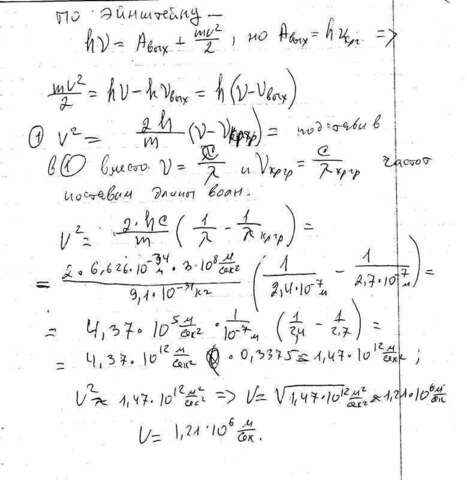 по Эйнштейну —
hν = Aвых + mv²/2, но Aвых = hνкр.г =>
mv²/2 = hν - hνвых = h(ν - νвых)
① v² = 2h/m (ν - νкр.гр) = подставив
в ① вместо ν = c/λ и νкр.гр = c/λкр.гр частот
поставим длины волн.
v² = 2·hc/m (1/λ - 1/λкр.гр) =
= 2·6,626·10⁻³⁴ · 3·10⁸ м/сек² / 9,1·10⁻³¹ кг (1/2,4·10⁻⁷м - 1/2,7·10⁻⁷м) =
= 4,37·10⁵ м/сек² · 1/10⁻⁷м (1/2,4 - 1/2,7) =
= 4,37·10¹² м/сек² · 0,3375 ≈ 1,47·10¹² м/сек²;
v² ≈ 1,47·10¹² м²/сек² => v = √1,47·10¹² м²/сек² ≈ 1,21·10⁶ м/сек
v = 1,21·10⁶ м/сек.